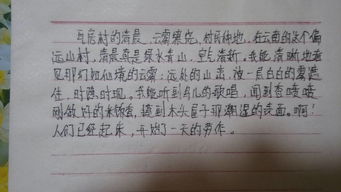 瓦房村的清晨,云雾缭绕,村民种地,在云南的这个偏
远山村,清晨真是绿水青山,空气清新,我能清晰地看
见那幻如仙境的云雾;远处的山峦,被一层白白的雾遮
住,时隐时现。我能听到鸟儿的歌唱,闻到香喷喷
刚做好的米饭香,摸到木头房子那潮湿的表面。啊!
人们已经起床,开始了一天的劳作。